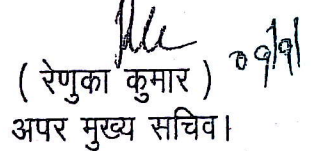 ( रेणुका कुमार ) 09/9/
अपर मुख्य सचिव।